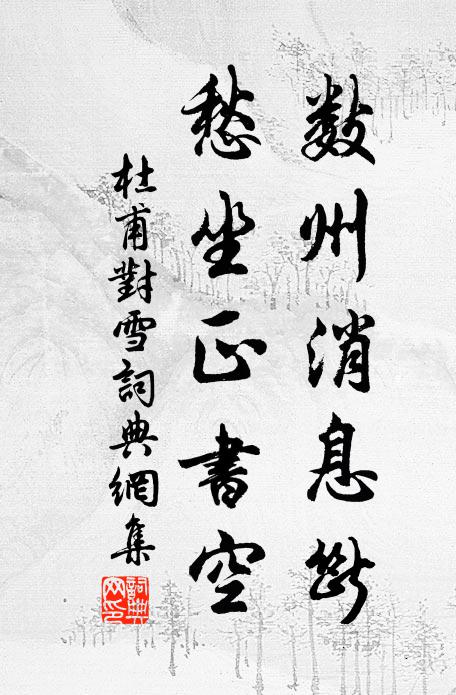 數州消息斷
愁坐正書空
杜甫對雪詞典網集
詞典網印